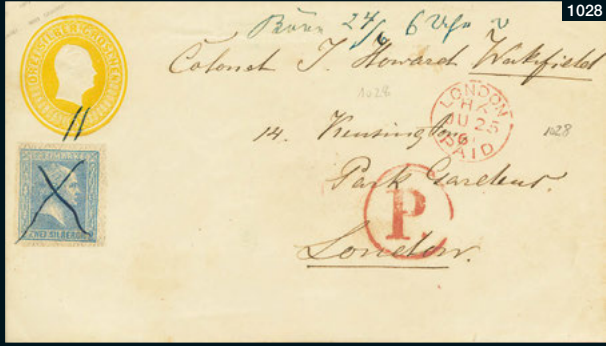 1028
24/6 6
Colonel J. Howard Wakefield
1028
LONDON
HX
JU 25
6
PAID
14. Kensington
1028
Park Gardens.
P
London.
ZWEI SILBERGR